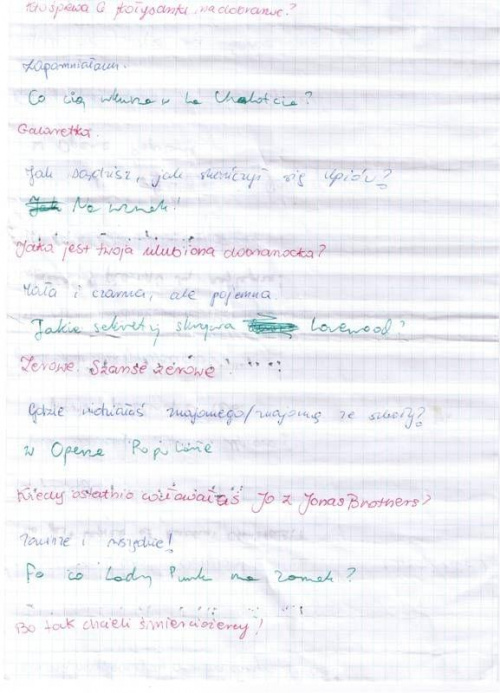 śpiewa Ci kołysanki na dobranoc?
Zapomniałam.
Co cię wkurza w La Chalotcie?
Galaretka.
Jak sądzisz, jak skończyć się upiór?
Na wznak!
Jaka jest twoja ulubiona dobranocka?
Mała i czarna, ale pojemna
Jakie sekrety skrywa Lovewood?
Zerowe. Szanse zerowe
Gdzie widziałaś znajomego/znajomą ze szkoły?
w Operze Populaire
Kiedy ostatnio widziałaś Jo z Jonas Brothers?
Zawsze i wszędzie!
Po co Lady Punk na zamek?
Bo tak chcieli śmierciożercy!